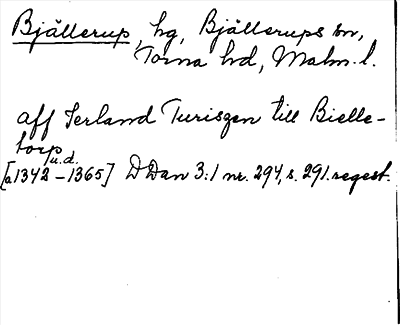 Bjällerup, hg, Bjällerups sn,
Torna hd, Malm. l.
aff Jerland Turisson till Bielle-
torp
u.d.
[a1342-1365] DDan 3:1 nr. 294, s. 291. regest.